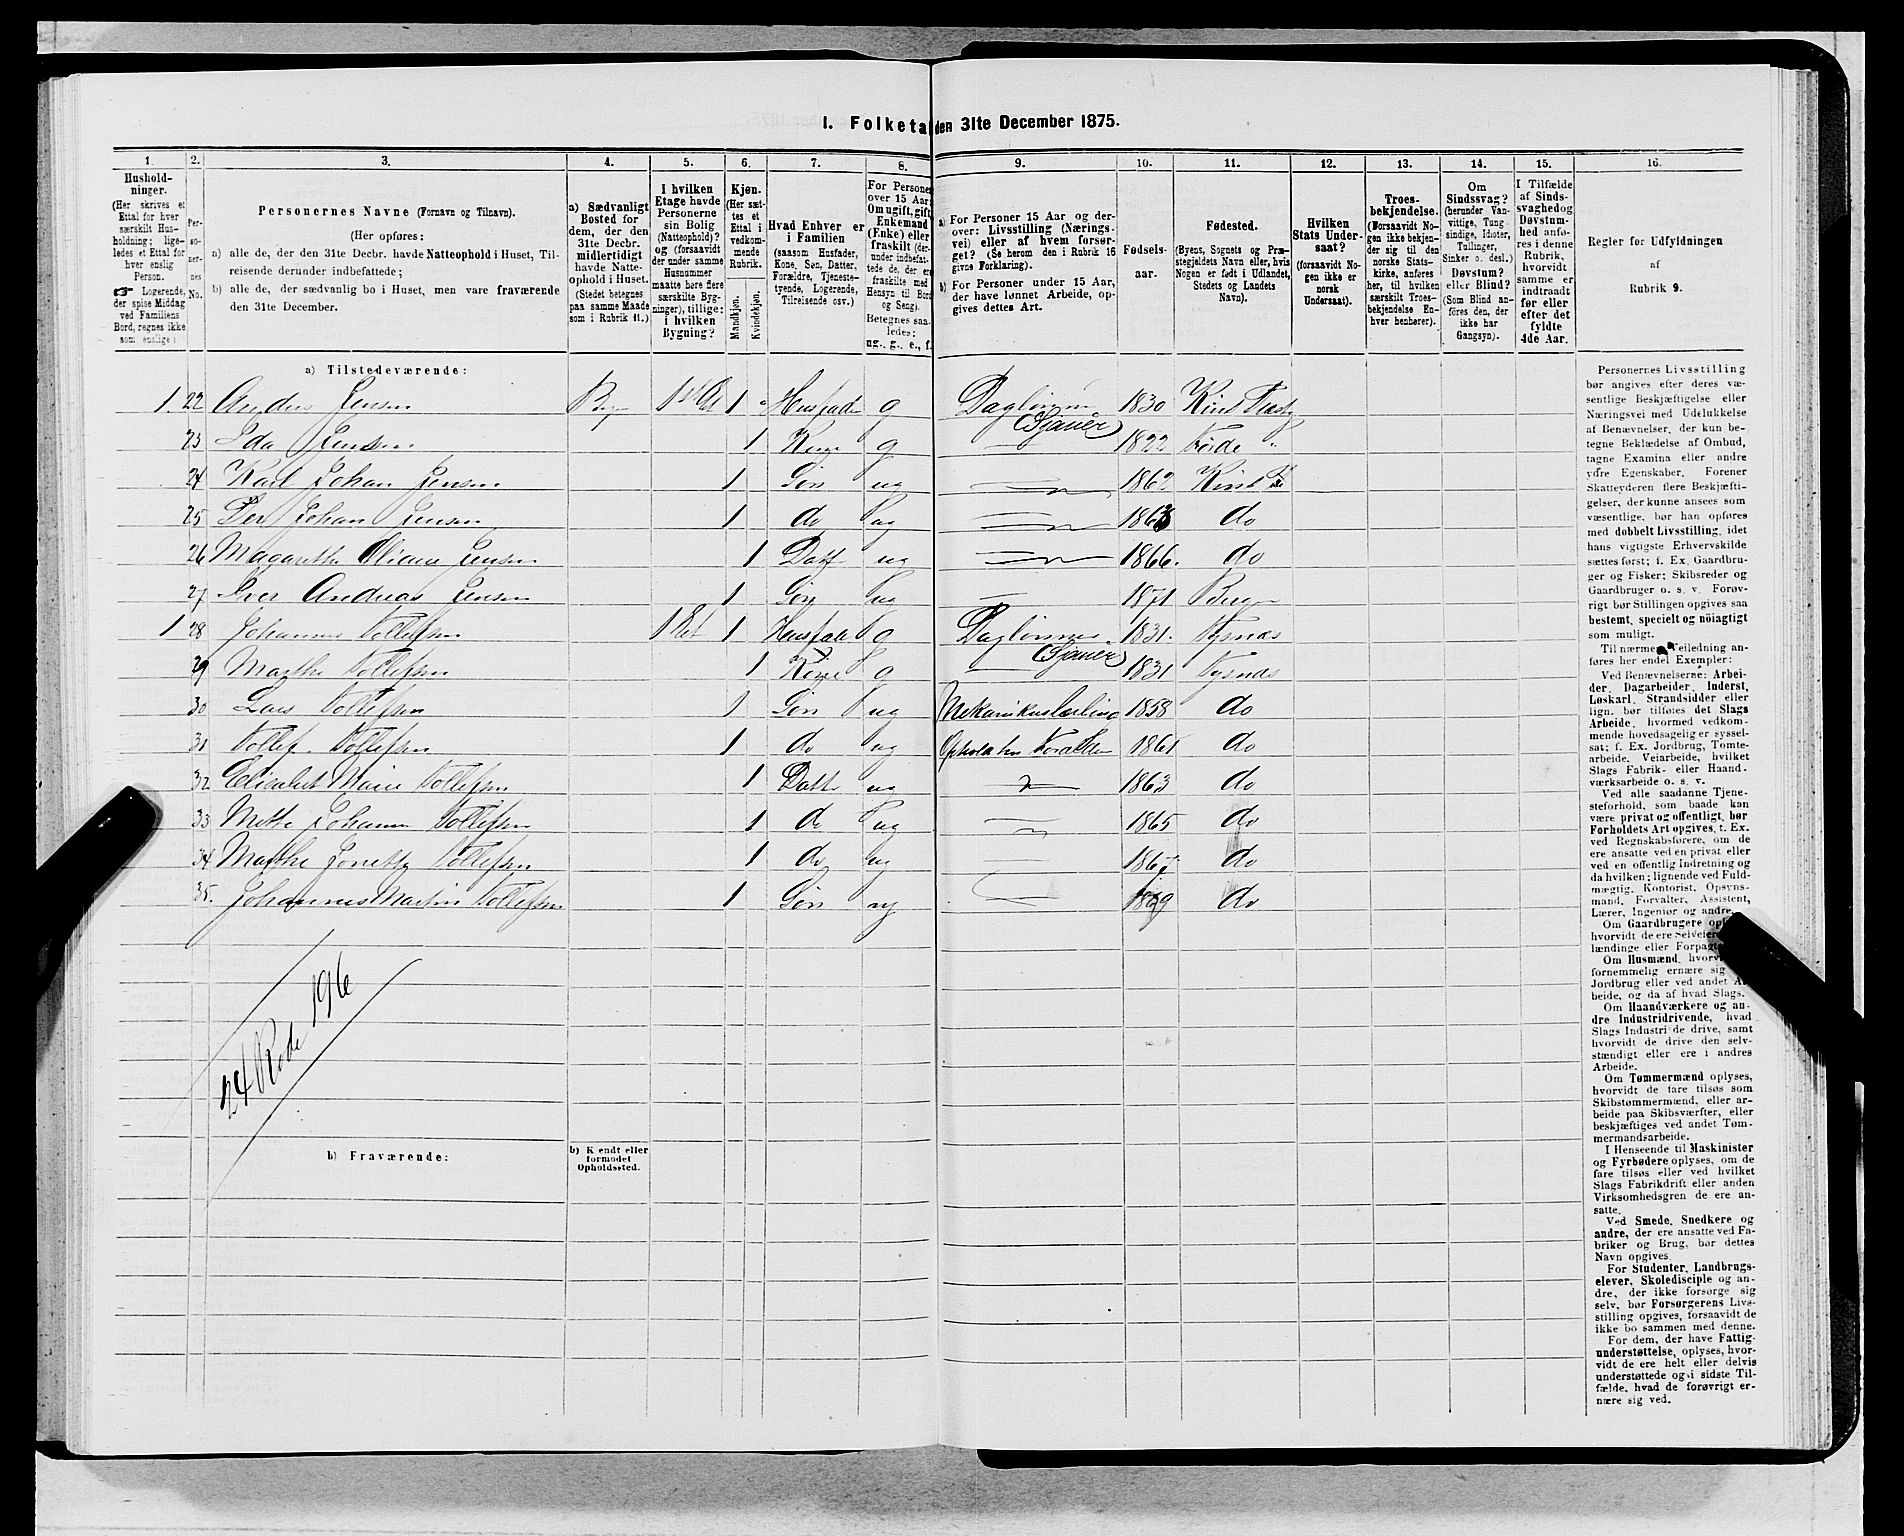 I. Folketal den 31te December 1875.
1. 2. 3. 4. 5. 6. 7. 8. 9. 10. 11. 12. 13. 14. 15. 16.
Hushold-
ninger.
(Her skrives et
Ettal for hver
særskilt Hus-
holdning; lige-
ledes et Ettal for
hver enslig
Person.
☛ Logerende,
der spise Middag
ved Familiens
Bord, regnes ikke
som enslige)
Per-
so-
ner-
nes
No.
Personernes Navne (Fornavn og Tilnavn).
(Her opføres:
a) alle de, der den 31te Decbr. havde Natteophold i Huset, Til-
reisende derunder indbefattede;
b) alle de, der sædvanlig bo i Huset, men vare fraværende
den 31te December.
a) Sædvanligt
Bosted for
dem, der den
31te Decbr.
midlertidigt
havde Natte-
ophold i Huset.
(Stedet betegnes
paa samme Maade
som i Rubrik 11.)
I hvilken
Etage havde
Personerne
sin Bolig
(Natteophold)?
og (forsaavidt
der under samme
Husnummer
maatte høre flere
særskilte Byg-
ninger), tillige:
i hvilken
Bygning?
Kjøn.
(Her sæt-
tes et
Ettal i
vedkom-
mende
Rubrik.
Mandkjøn.
Kvindekjøn.
Hvad Enhver er
i Familien
(saasom Husfader,
Kone, Søn, Datter,
Forældre, Tjeneste-
tyende, Logerende,
Tilreisende osv.)
For Personer
over 15 Aar:
Om ugift, gift,
Enkemand
(Enke) eller
fraskilt (der-
under indbefat-
tede de, der ere
fraskilte med
Hensyn til Bord
og Seng).
Betegnes saa-
ledes:
ug., g., e., f.
a) For Personer 15 Aar og der-
over: Livsstilling (Nærings-
vei) eller af hvem forsør-
get? (Se herom den i Rubrik 16
givne Forklaring).
b) For Personer under 15 Aar,
der have lønnet Arbeide, op-
gives dettes Art.
Fødsels-
aar.
Fødested.
(Byens, Sognets og Præ-
stegjeldets Navn eller, hvis
Nogen er født i Udlandet,
Stedets og Landets
Navn).
Hvilken
Stats Under-
saat?
(forsaavidt No-
gen ikke er
norsk
Undersaat).
Troes-
bekjendelse.
(Forsaavidt No-
gen ikke bekjen-
der sig til den
norske Stats-
kirke, anføres
her, til hvilken
særskilt Troes-
bekjendelse En-
hver henhører).
Om
Sindssvag?
(herunder Van-
vittige, Tung-
sindige, Idioter,
Tullinger,
Sinker o. desl.)
Døvstum?
eller Blind?
(Som Blind an-
føres den, der
ikke har
Gangsyn).
I Tilfælde
af Sinds-
svaghed og
Døvstum-
hed anfø-
res i denne
Rubrik,
hvorvidt
samme er
indtraadt
før eller
efter det
fyldte
4de Aar.
Regler for Udfyldningen
af
Rubrik 9.
a) Tilstedeværende:
1. 22 Anders Jensen 1 Husfader g Dagløn 1830 Kind
Sjauer
23 Ida Jensen 1 Kone g 1822 Førde "
24 Karl Johan Jensen 1 Søn ug 1862 Kind
25 Per Johan Jensen 1 do ug do
26 Magarethe Jensen 1 Datt ug 1866. do
27 Iver Andreas Jensen 1 Søn ug 1871
1 28 Johannes Tollefsen 1 Et 1 Husfader g 1831. Tysnæs
Sjauer
29 Marthe Tollefsen 1 Kone g 1831 Tysnæs
30 Lars Tollefsen 1 Søn ug 1858 do
31 Tollef Tollefsen 1 do ug 1861 do
32 Elisabet Marie Tollefsen 1 Datt ug 1863 do
33 Mette Johanne Tollefsen 1 do ug 1865 do
34 Marthe Tollefsen 1 do ug 1867 do
35. Johannes Martin Tollefsen 1 Søn ug do
24 Rode 196
b) Fraværende:
b) Kjendt eller
formodet
Opholdssted.
Personernes Livsstilling
bør angives efter deres væ-
sentlige Beskjæftigelse eller
Næringsvei med Udelukkelse
af Benævnelser, der kun be-
tegne Beklædelse af Ombud,
tagne Examina eller andre
ydre Egenskaber. Forener
Skatteyderen flere Beskjæfti-
gelser, der kunne ansees som
væsentlige, bør han opføres
med dobbelt Livsstilling, idet
hans vigtigste Erhvervskilde
sættes først; f. Ex. Gaardbru-
ger og Fisker; Skibsreder og
Gaardbruger o. s. v. Forøv-
rigt bør Stillingen opgives saa
bestemt, specielt og nøiagtigt
som muligt.
Til nærmere Veiledning an-
føres her endel Exempler:
Ved Benævnelserne: Arbei-
der, Dagarbeider, Inderst,
Løskarl, Strandsidder eller
lign. bør tilføies det Slags
Arbeide, hvormed vedkom-
mende hovedsagelig er syssel-
sat; f. Ex. Jordbrug, Tomte-
arbeide, Veiarbeide, hvilket
Slags Fabrik- eller Haand-
værksarbeide o. s. v.
Ved alle saadanne Tjene-
steforhold, som baade kan
være privat og offentligt, bør
Forholdets Art opgives, t. Ex.
ved Regnskabsførere, om de
ere ansatte ved en privat eller
ved en offentlig Indretning og
da hvilken; lignende ved Fuld-
mægtig, Kontorist, Opsyns-
mand, Forvalter, Assistent,
Lærer, Ingeniør og andre.
Om Gaardbrugere
hvorvidt de ere Selveiere
lændinge eller
Om Husmænd,
fornemmelig ernære sig
Jordbrug eller ved andet Ar-
beide, og da af hvad Slags.
Om Haandværkere og an-
dre Industridrivende, hvad
Slags Industri de drive, samt
hvorvidt de drive den selv-
stændigt eller ere i andres
Arbeide.
Om Tømmermænd oplyses,
hvorvidt de fare tilsøs som
Skibstømmermænd, eller ar-
beide paa Skibsværfter, eller
beskjæftiges ved andet Tøm-
mermandsarbeide.
I Henseende til Maskinister
og Fyrbødere oplyses, om de
fare tilsøs eller ved hvilket
Slags Fabrikdrift eller anden
Virksomhedsgren de ere an-
satte.
Ved Smede, Snedkere og
andre, der ere ansatte ved Fa-
briker og Brug, bør dettes
Navn opgives.
For Studenter, Landbrugs-
elever, Skoledisciple og an-
dre, der ikke forsørge sig
selv, bør Forsørgerens Livs-
stilling opgives, forsaavidt de
ikke bo sammen med denne.
For dem, der have Fattig-
understøttelse, oplyses, hvor-
vidt de ere helt eller delvis
understøttede og i sidste Til-
fælde, hvad de forøvrigt er-
nære sig ved.